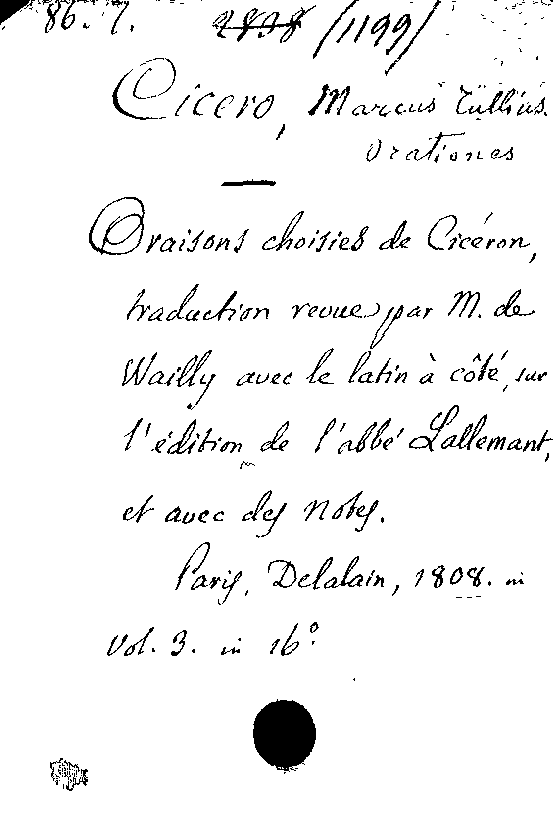 86. 7. 2838 /1199/
Cicero, Marcus Tullius.
Orationes
Oraisons choisies de Cicéron,
traduction revue par M. de
Wailly avec le latin à côté, sur
l'édition de l'abbé Lallemant,
et avec des notes.
Paris, Delalain, 1808. in
Vol. 3. in 16º